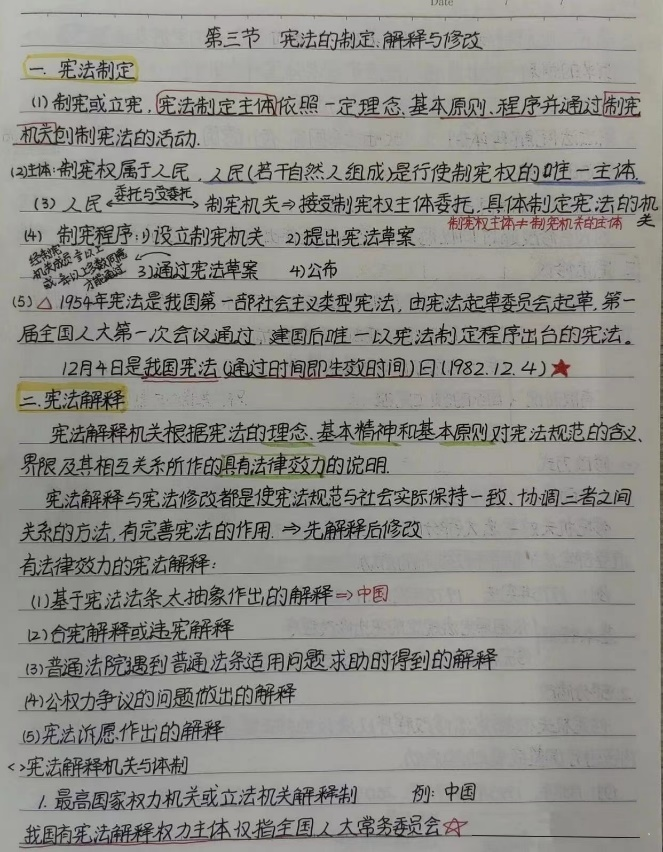 Date / /
第三节 宪法的制定、解释与修改
一. 宪法制定
(1) 制宪或立宪, 宪法制定主体依照一定理念、基本原则、程序并通过制宪
机关创制宪法的活动.
(2)主体: 制宪权属于人民, 人民(若干自然人组成)是行使制宪权的唯一主体.
(3) 人民 委托与受委托 制宪机关⇒接受制宪权主体委托, 具体制定宪法的机关
制宪权主体≠制宪机关的主体
(4) 制宪程序: 1) 设立制宪机关 2) 提出宪法草案
经制宪机关成员 以上或 以上多数同意才能通过
3) 通过宪法草案 4) 公布
(5) △ 1954年宪法是我国第一部社会主义类型宪法, 由宪法起草委员会起草, 第一
届全国人大第一次会议通过, 建国后唯一以宪法制定程序出台的宪法。
12月4日是我国宪法(通过时间即生效时间)日(1982.12.4) ★
二. 宪法解释
宪法解释机关根据宪法的理念、基本精神和基本原则对宪法规范的含义、
界限及其相互关系所作的具有法律效力的说明.
宪法解释与宪法修改都是使宪法规范与社会实际保持一致、协调二者之间
关系的方法, 有完善宪法的作用. ⇒先解释后修改
有法律效力的宪法解释:
(1) 基于宪法法条太抽象作出的解释⇒中国
(2) 合宪解释或违宪解释
(3) 普通法院遇到普通法条适用问题求助时得到的解释
(4) 公权力争议的问题做出的解释
(5) 宪法诉愿作出的解释
<>宪法解释机关与体制
1. 最高国家权力机关或立法机关解释制 例: 中国
我国有宪法解释权力主体仅指全国人大常务委员会☆